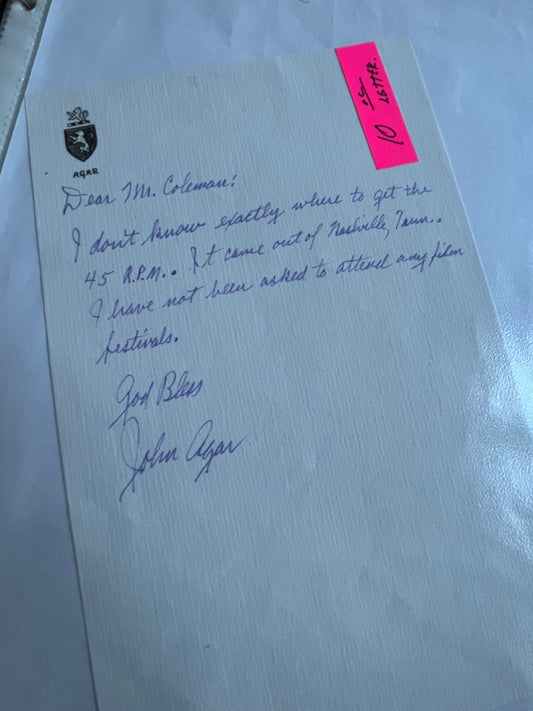 AGAR
10 00
LETTER.
Dear Mr. Coleman:
I don't know exactly where to get the
45 R.P.M.. It came out of Nashville, Tenn..
I have not been asked to attend any film
festivals.
God Bless
John Agar